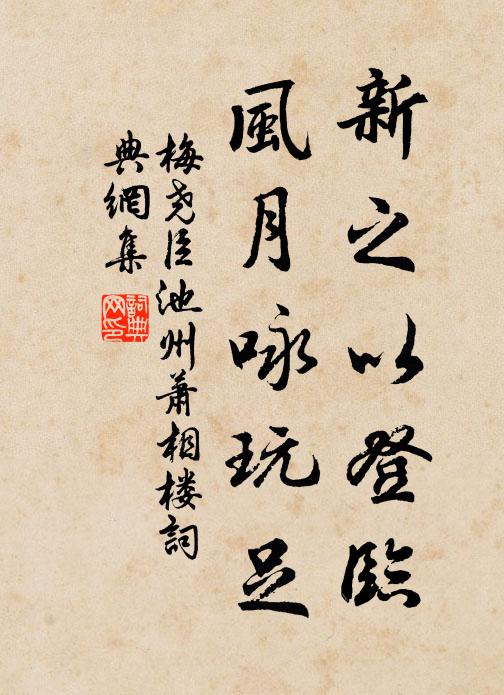 新之以登臨
風月咏玩足
梅尧臣池州萧相楼詞
典網集
詞典网印